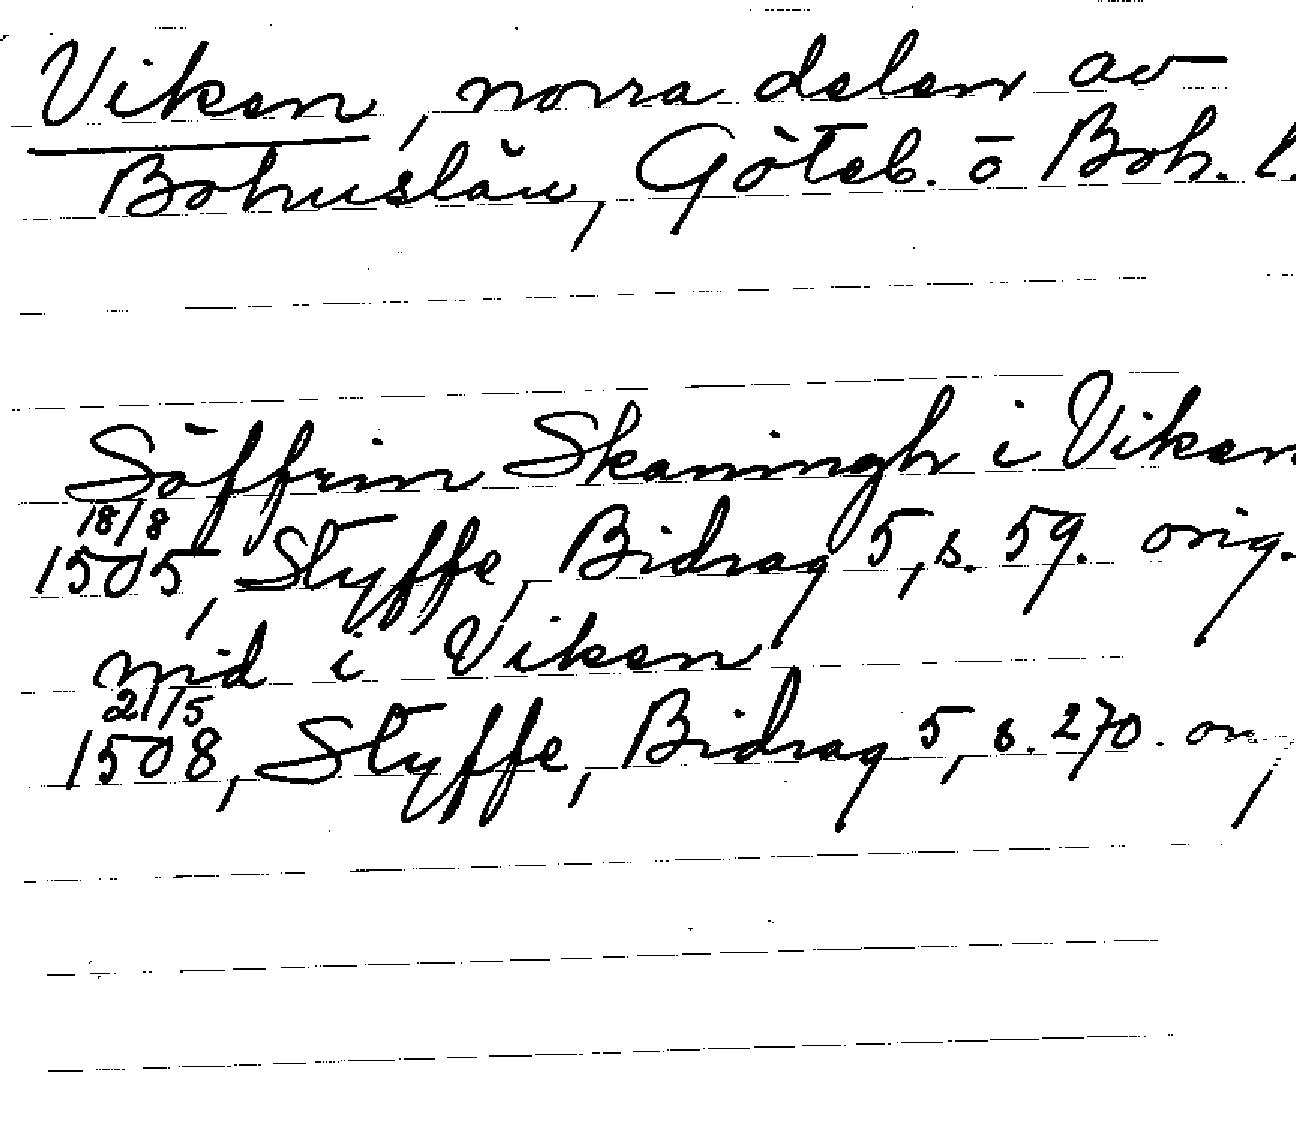 Viken, norra delen av
Bohuslän, Göteb. o Boh. l.
Söffrin Skaningh i Viken
18/8
1505, Styffe, Bidrag 5, s. 59. orig.
nid i Viken
21/5
1508, Styffe, Bidrag 5, s. 270. or